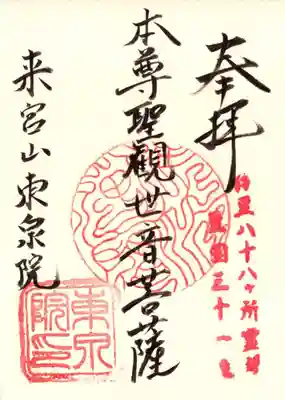 奉拝
伊豆八十八ヶ所霊場
第三十一番
本尊聖觀世音菩薩
来宮山東泉院
東泉
院印